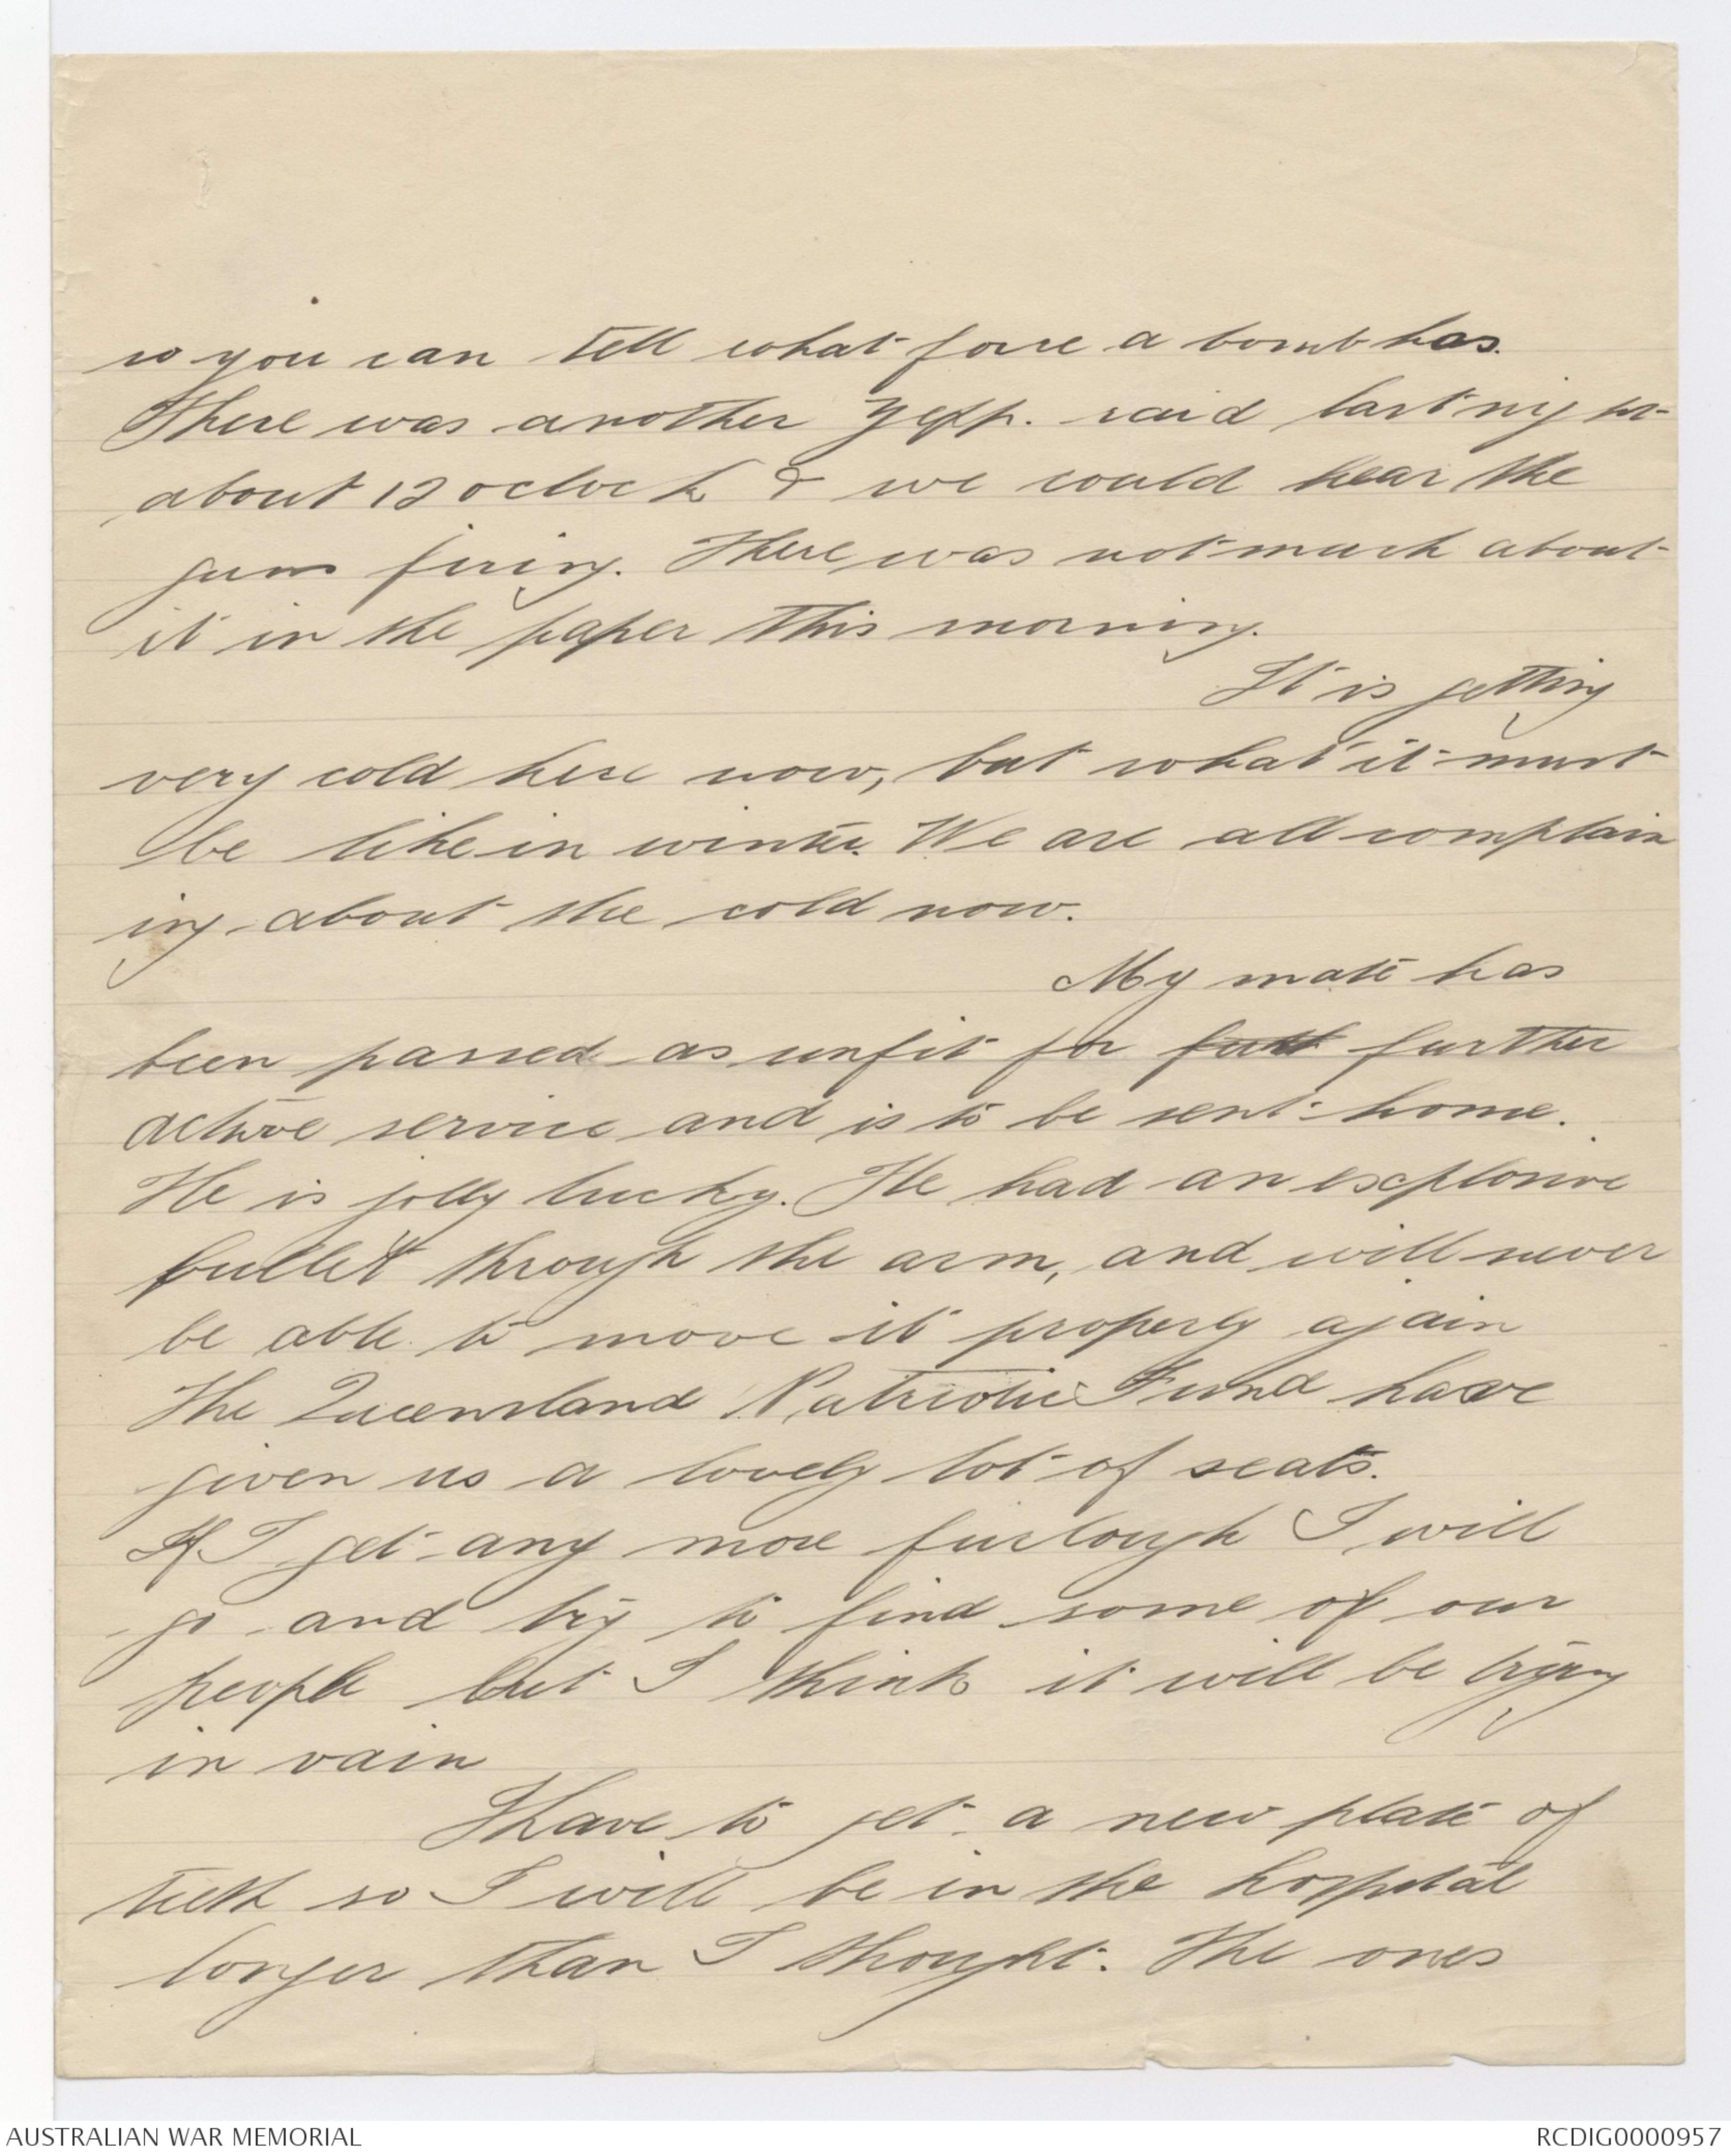 so you can tell what force a bomb has.
There was another Zepp. raid last night
about 12 oclock & we could hear the
guns firing. There was not much about
it in the paper this morning.
It is getting
very cold here now, but what it must
be like in winter. We are all complain
ing about the cold now.
My mate has
been passed as unfit for furth further
active service and is to be sent home.
He is jolly lucky. He had an explosive
bullet through the arm, and will never
be able to move it properly again
The Queensland Patriotic Fund have
given us a lovely lot of seats.
If I get any more furlough I will
go and try to find some of our
people but I think it will be trying
in vain
I have to get a new plate of
teeth so I will be in the hospital
longer than I thought. The ones
AUSTRALIAN WAR MEMORIAL
RCDIG0000957